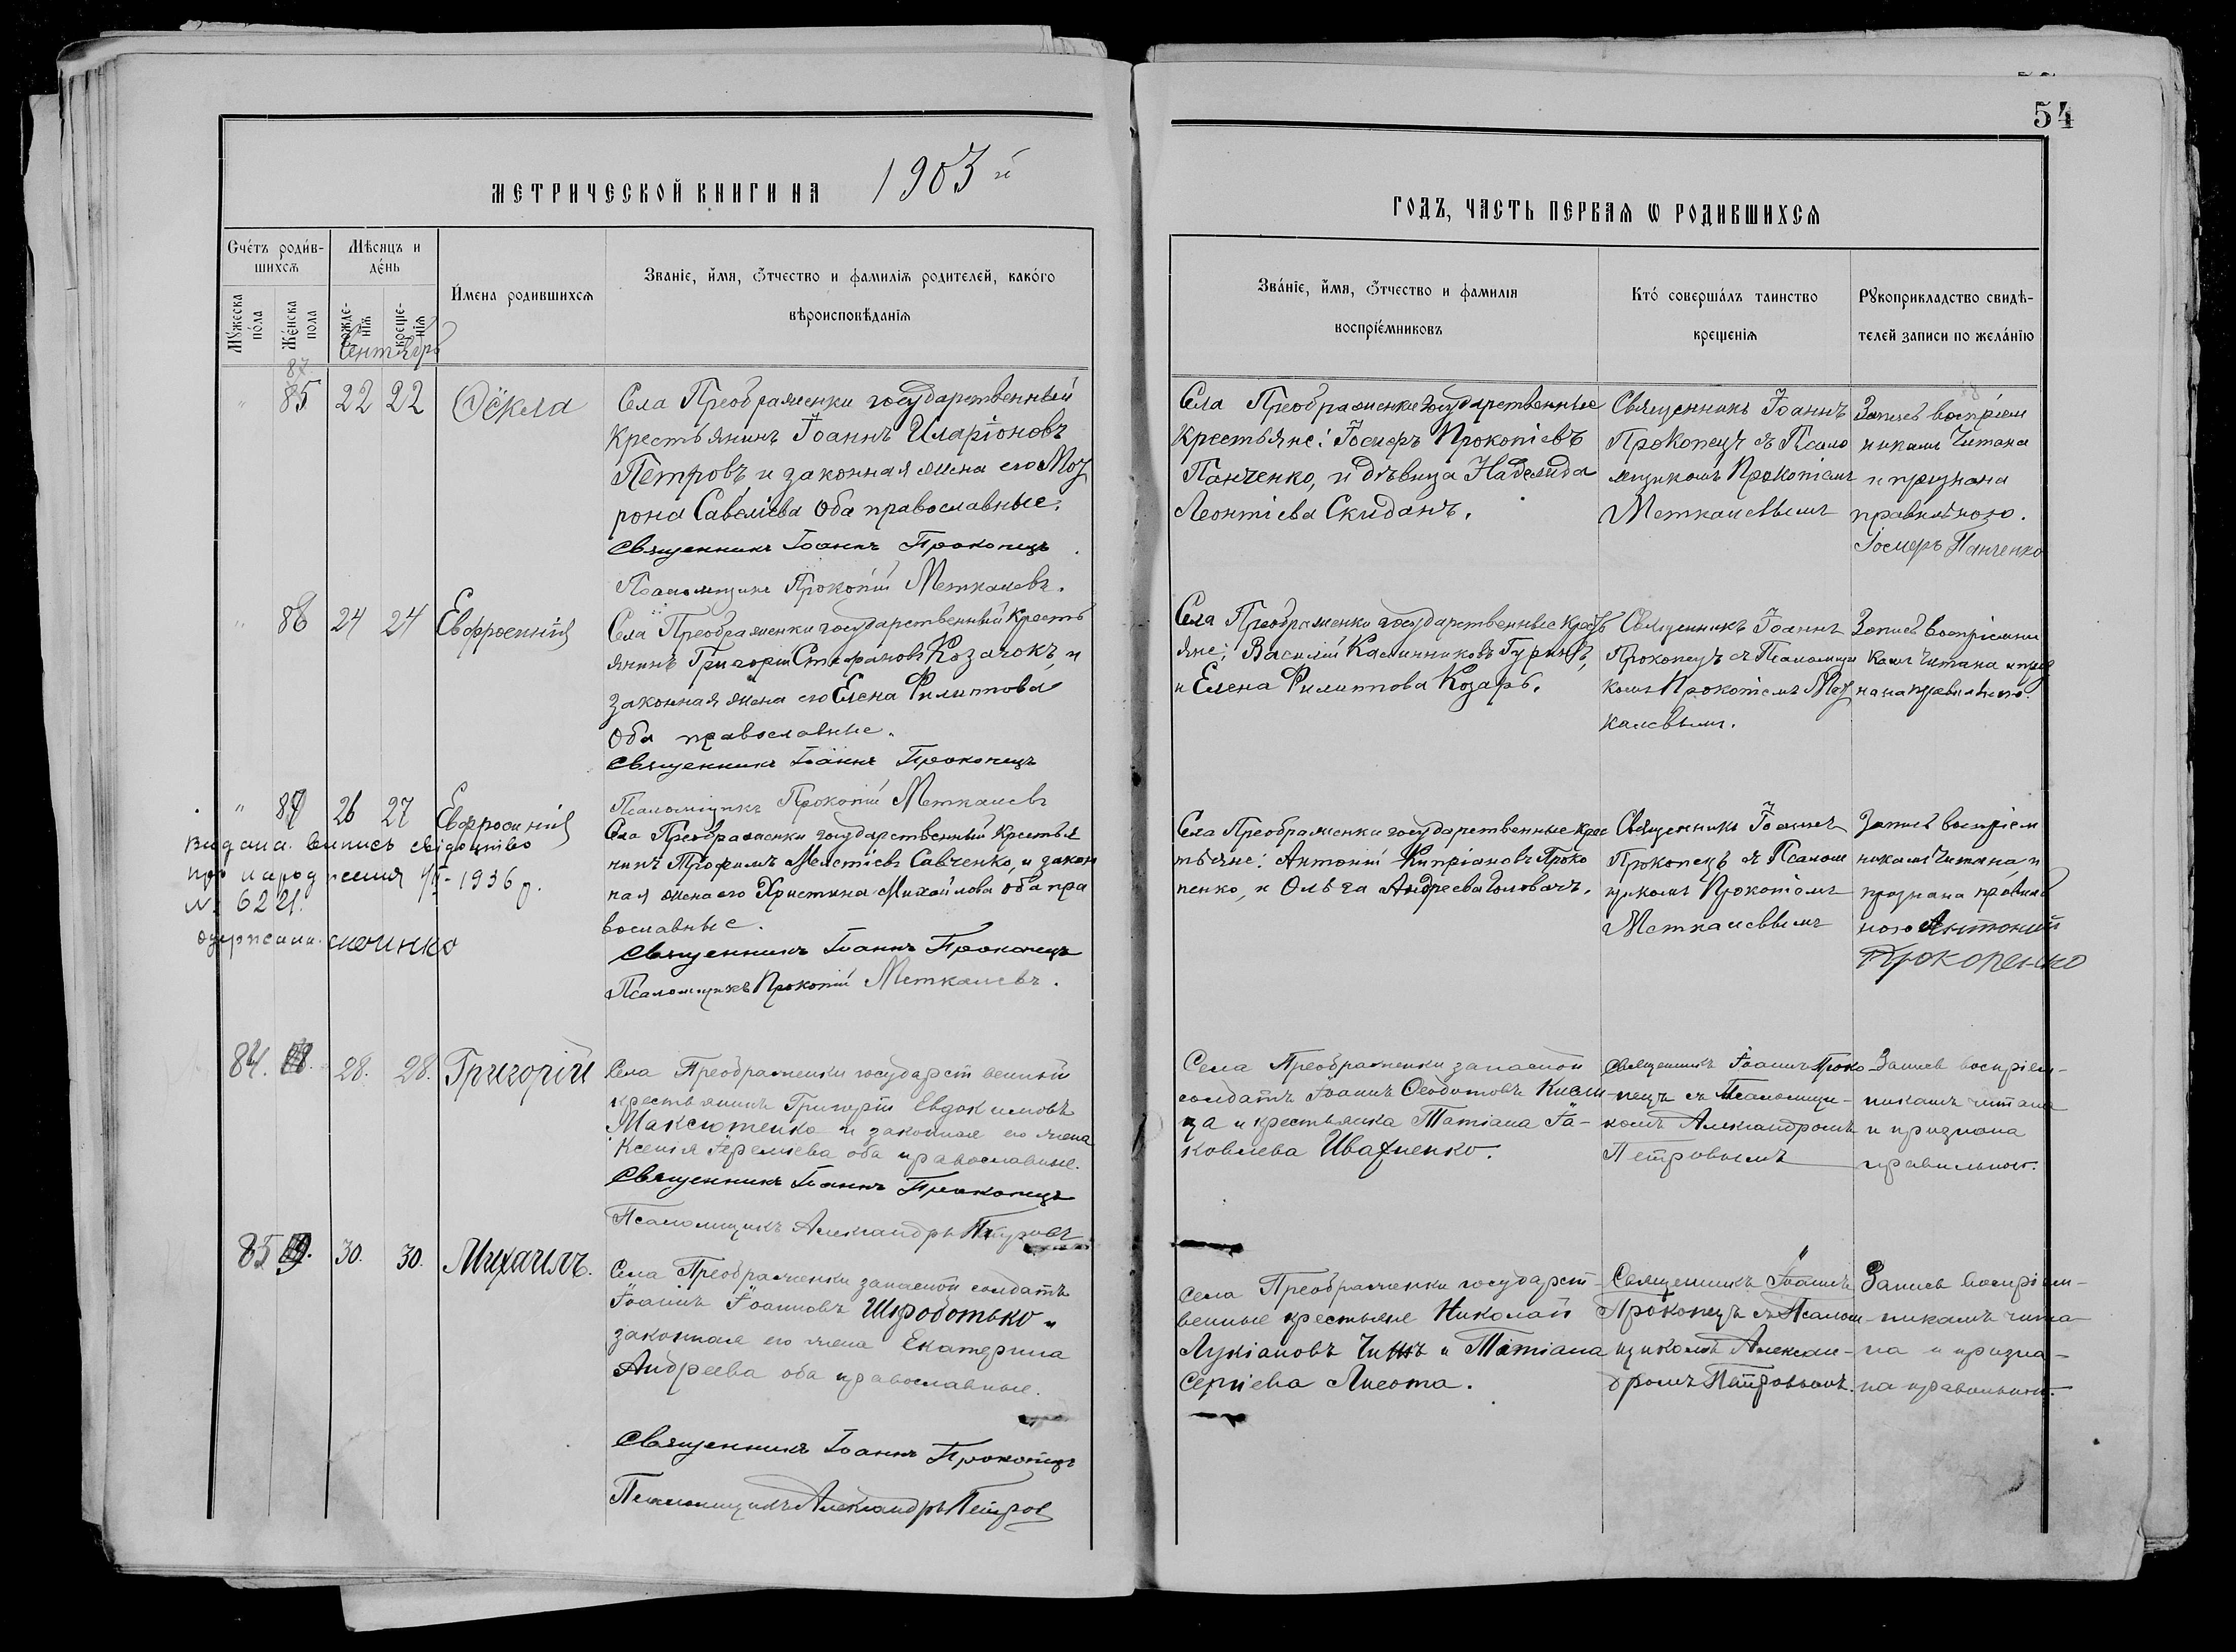 54
МЕТРИЧЕСКОЙ КНИГИ НА 1903 й
ГОДЪ, ЧАСТЬ ПЕРВАЯ Ѡ РОДИВШИХСЯ
Счётъ родив-
шихся
Мѣсяцъ и
день
Мужеска
пола
Женска
пола
Рожде-
нія
креще-
нія
Имена родившихся
Званіе, имя, отчество и фамилія родителей, какого
вѣроисповѣданія
Званіе, имя, отчество и фамилія
воспріемниковъ
Кто совершалъ таинство
крещенія
Рукоприкладство свидѣ-
телей записи по желанію
Сентябрь
87
" 85 22 22 Ѳёкла
Села Преображенки государственный
крестьянинъ Іоаннъ Иларіоновъ
Петровъ и законная жена его Мот
рона Савеліева Оба православные.
Священникъ Іоаннъ Прокопецъ
Псаломщикъ Прокопій Меткалевъ.
Села Преображенки государственные
крестьяне: Іосифъ Прокопіевъ
Панченко, и дѣвица Надежда
Леонтіева Скиданъ.
Священникъ Іоаннъ
Прокопецъ съ Псало
мщикомъ Прокопіемъ
Меткалевымъ
Запись воспріем
никамъ читана
и признана
правильною.
Іосифъ Панченко
" 86 24 24 Евфросинія
Села Преображенки государственный кресть
янинъ Григорій Стефановъ Козачокъ, и
законная жена его Елена Филиппова
Оба православные.
Священникъ Іоаннъ Прокопецъ
Псаломщикъ Прокопій Меткалевъ
Села Преображенки государственные кресть
яне: Василій Калинниковъ Гуринъ,
и Елена Филиппова Козаръ.
Священникъ Іоаннъ
Прокопецъ съ Псаломщи
комъ Прокопіемъ Мет
калевымъ.
Запись воспріемни
камъ читана и приз
нана правильною.
" 87 26 27 Евфросинія
Видана випись свідоцтво
про народження 4/II-1936 р.
№ 6221.
Одержали
Села Преображенки государственный крестья
нинъ Трофимъ Мелетіевъ Савченко, и закон
ная жена его Христина Михайлова оба пра
вославные.
Священникъ Іоаннъ Прокопецъ
Псаломщикъ Прокопій Меткалевъ.
Села Преображенки государственные крес
тьяне: Антоній Кипріановъ Проко
пенко, и Ольга Андреева Головачъ.
Священникъ Іоаннъ
Прокопецъ съ Псалом
щикомъ Прокопіемъ
Меткалевымъ
Запись воспріем
никамъ читана и
признана правиль
ною Антоній
Прокопенко
84. 28. 28. Григорій
Села Преображенки государственный
крестьянинъ Григорій Евдокимовъ
Максютенко и законная его жена
Ксенія Іереміева оба православные.
Священникъ Іоаннъ Прокопецъ
Псаломщикъ Александръ Петровъ
Села Преображенки запасной
солдатъ Іоаннъ Ѳеодотовъ
и крестьянка Татіана Іа-
ковлева Ивахненко.
Священникъ Іоаннъ Проко-
пецъ съ Псаломщи-
комъ Александромъ
Петровымъ
Запись воспріем-
никамъ читана
и признана
правильною.
85 30. 30. Михаилъ.
Села Преображенки запасной солдатъ
Іоаннъ Іоанновъ Шкроботько и
законная его жена Екатерина
Андреева оба православные.
Священникъ Іоаннъ Прокопецъ
Псаломщикъ Александръ Петровъ
Села Преображенки государст-
венные крестьяне Николай
Лукіановъ Чижъ и Татіана
Сергіева Лисота.
Священникъ Іоаннъ
Прокопецъ съ Псалом-
щикомъ Алексан-
дромъ Петровымъ.
Запись воспріем-
никамъ чита-
на и призна-
на правильною.